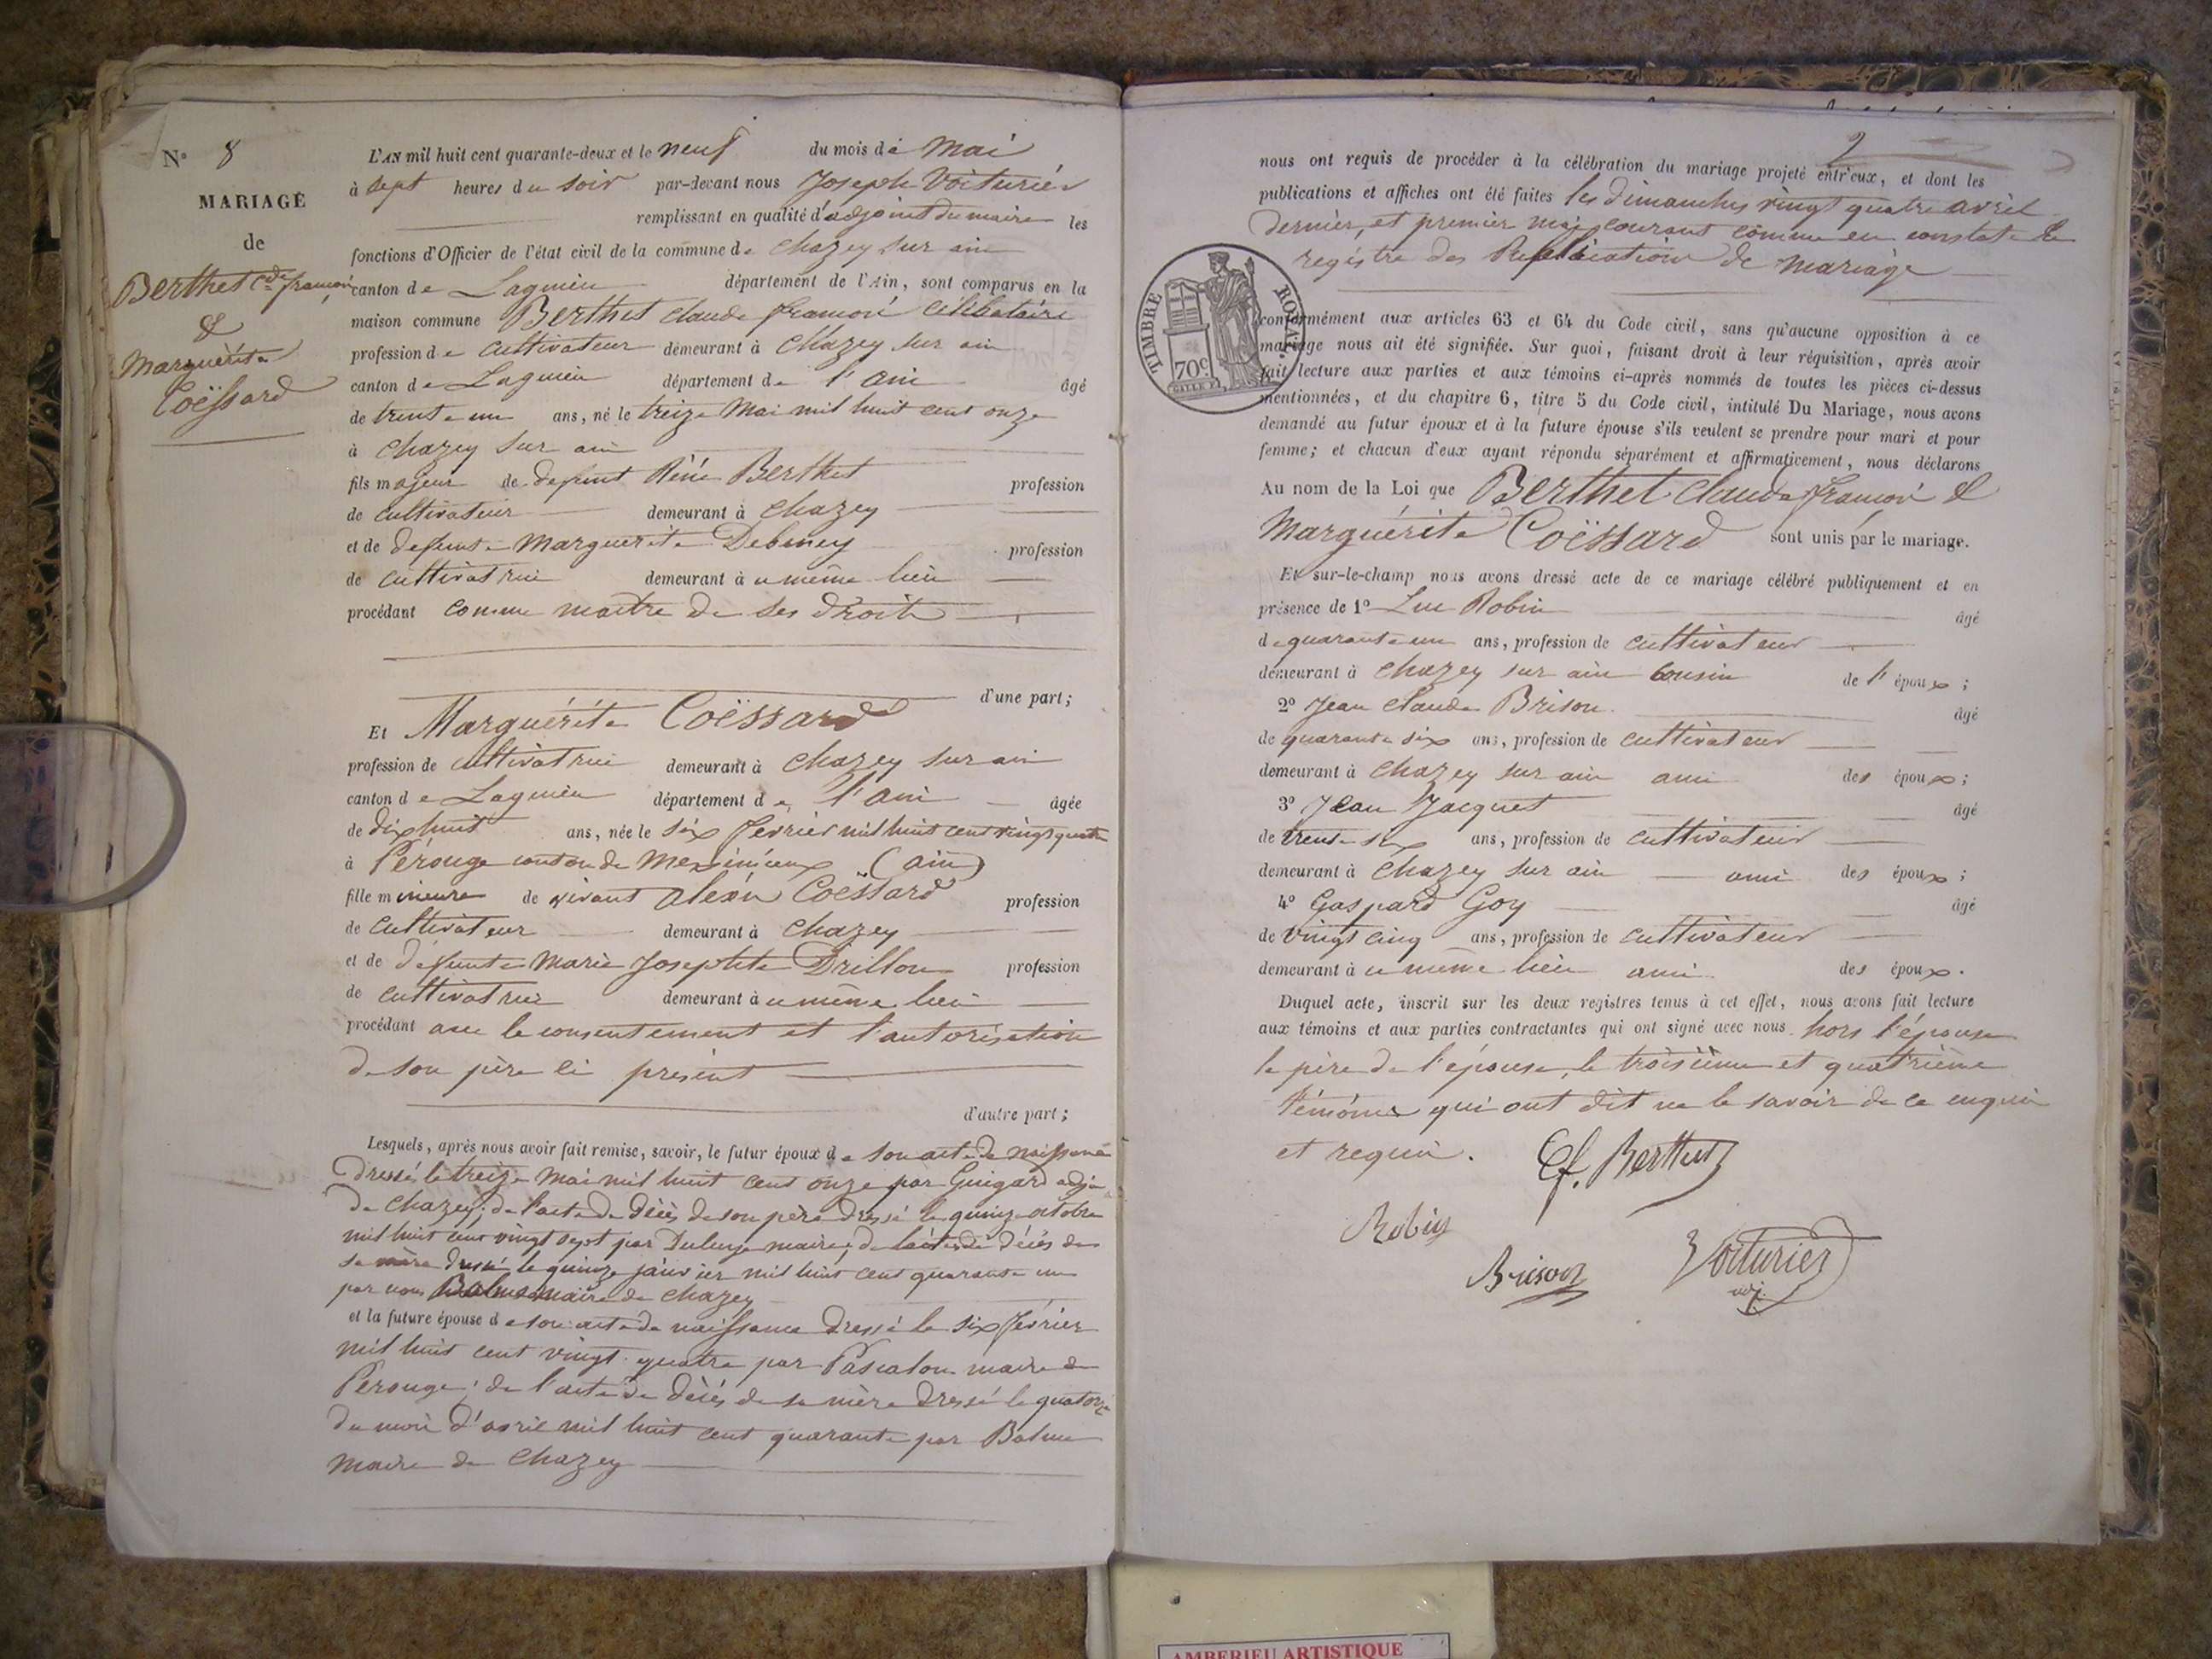 N° 8
MARIAGE
de
Berthet Cde françois
&
Marguérite
Coëssard
L'AN mil huit cent quarante-deux et le neuf du mois de Mai
à sept heures du soir par-devant nous Joseph Voiturier
remplissant en qualité d'adjoint du maire les
fonctions d'Officier de l'état civil de la commune de Chazey sur ain
canton de Lagnieu département de l'Ain, sont comparus en la
maison commune Berthet Claude françois Célibataire
profession de Cultivateur demeurant à Chazey sur ain
canton de Lagnieu département de l'ain âgé
de trente un ans, né le treize Mai mil huit cent onze
à Chazey sur ain
fils majeur de defunt Réné Berthet profession
de cultivateur demeurant à Chazey
et de defunte Marguerite Debeney profession
de cultivatrice demeurant à u même lieu
procédant comme maitre de ses droits
d'une part;
Et Marguérite Coëssard
profession de cultivatrice demeurant à Chazey sur ain
canton de Lagnieu département de l'ain âgée
de dix huit ans, née le six fevrier mil huit cent vingt quatre
à Pérouge canton de Meximieux (ain)
fille mineure de vivant alexis Coëssard profession
de Cultivateur demeurant à Chazey
et de defunte Marie Josephte Drillon profession
de cultivatrice demeurant à u même lieu
procédant avec le consentement et l'autorisation
de son père ci présent
d'autre part;
Lesquels, après nous avoir fait remise, savoir, le futur époux de son acte de naissance
Dressé le treize Mai mil huit cent onze par Guigard adjt
de Chazey; de l'acte de Décès de son père dressé le quinze octobre
mil huit cent vingt sept par maire; de l'acte de décès de
sa mère Dressé le quinze janvier mil huit cent quarante un
par nous Balme Maire de Chazey
et la future épouse de son acte de naissance Dressé le six février
mil huit cent vingt quatre par Pascalon maire de
Perouge; de l'acte de Décès de sa mère Dressé le quatorze
du mois d'avril mil huit cent quarante par Balme
maire de Chazey
2
nous ont requis de procéder à la célébration du mariage projeté entr'eux, et dont les
publications et affiches ont été faites les dimanches vingt quatre avril
dernier, et premier mai courant comme en constate le
registre des Publications de mariage
TIMBRE ROYAL.
70c.
conformément aux articles 63 et 64 du Code civil, sans qu'aucune opposition à ce
mariage nous ait été signifiée. Sur quoi, faisant droit à leur réquisition, après avoir
fait lecture aux parties et aux témoins ci-après nommés de toutes les pièces ci-dessus
mentionnées, et du chapitre 6, titre 5 du Code civil, intitulé Du Mariage, nous avons
demandé au futur époux et à la future épouse s'ils veulent se prendre pour mari et pour
femme; et chacun d'eux ayant répondu séparément et affirmativement, nous déclarons
Au nom de la Loi que Berthet Claude françois &
Marguérite Coëssard sont unis par le mariage.
Et sur-le-champ nous avons dressé acte de ce mariage célébré publiquement et en
présence de 1° Luc Robin âgé
de quarante un ans, profession de cultivateur
demeurant à Chazey sur ain cousin de l' époux;
2° Jean Claude Brison âgé
de quarante six ans, profession de cultivateur
demeurant à Chazey sur ain ami des époux;
3° Jean Jacquet âgé
de trente six ans, profession de cultivateur
demeurant à Chazey sur ain ami des époux;
4° Gaspard Goy âgé
de vingt cinq ans, profession de cultivateur
demeurant à u même lieu ami des époux.
Duquel acte, inscrit sur les deux registres tenus à cet effet, nous avons fait lecture
aux témoins et aux parties contractantes qui ont signé avec nous hors l'épouse
le père de l'épouse, le troisième et quatrième
témoins qui ont dit ne le savoir de ce enquis
et requis. Cf. Berthet
Robin
Brison Voiturier
adj.
AMBERIEU ARTISTIQUE